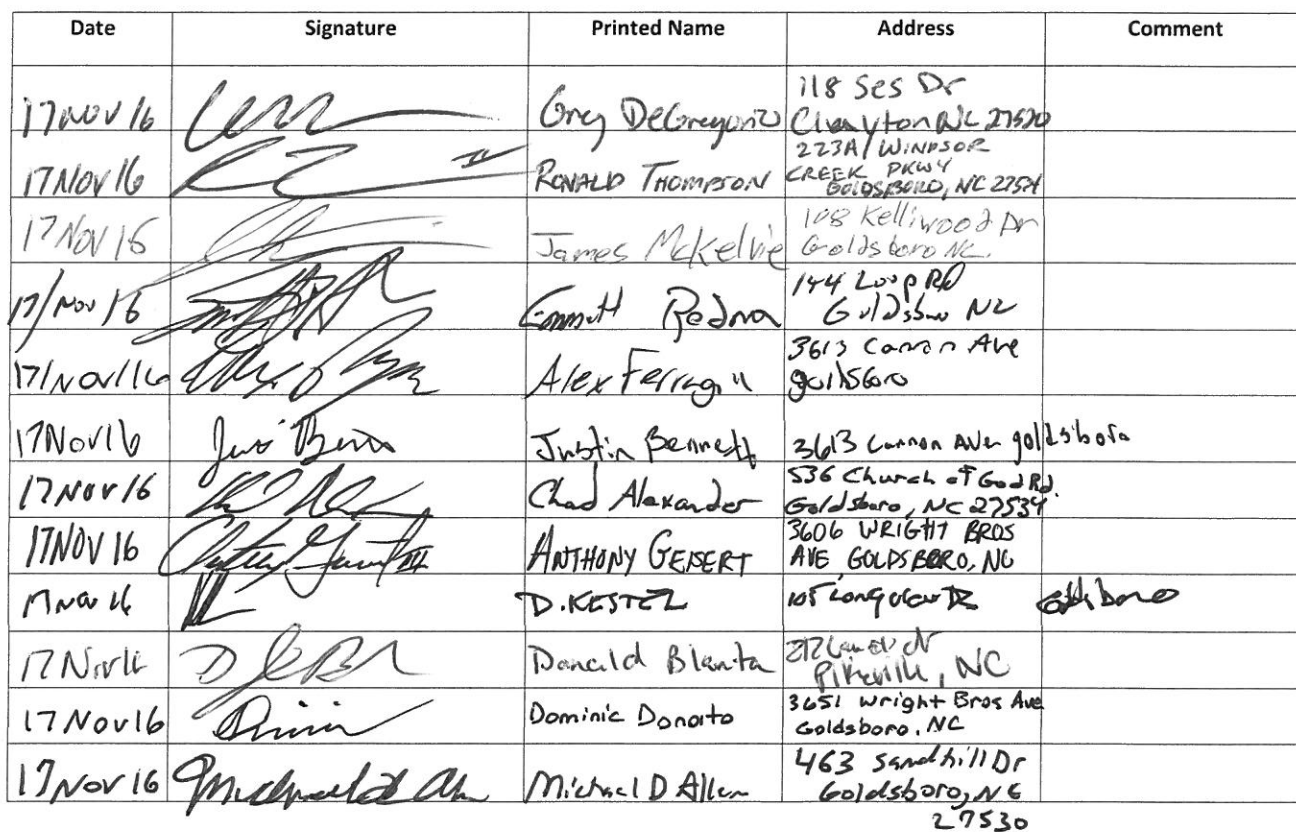 Date Signature Printed Name Address Comment
118 Ses Dr
17 NOV 16 Greg DeGregorio Clayton NC 27520
223A WINDSOR
17 NOV 16 RONALD THOMPSON CREEK PKWY
GOLDSBORO, NC
17 NOV 16 James McKelvie 108 Kelliwood Dr
Goldsboro NC
17/Nov/16 Emmett 144 Loop Rd
Goldsboro NC
17/Nov/16 Alex 3613 Cannon Ave
goldsboro
17 Nov 16 Justin Bennett 3613 Cannon Ave goldsboro
17 Nov 16 Chad Alexander 536 Church of God Rd.
Goldsboro, NC 27534
17 NOV 16 ANTHONY GEISERT 3606 WRIGHT BROS
AVE GOLDSBORO, NC
17 Nov 16 D. 105 Goldsboro
17 Nov 16 Donald Dr
Pikeville, NC
17 Nov 16 Dominic Donato 3651 Wright Bros Ave
Goldsboro, NC
17 Nov 16 Michael D Allen 463 Sandhill Dr
Goldsboro, NC
27530